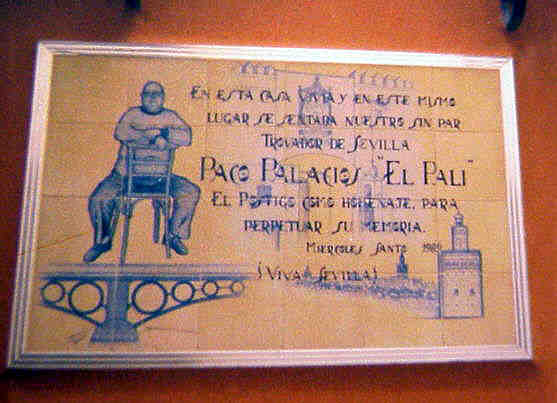 EN ESTA CASA VIVIA Y EN ESTE MISMO
LUGAR SE SENTABA NUESTRO SIN PAR
TROVADOR DE SEVILLA
PACO PALACIOS "EL PALI"
EL POSTIGO COMO HOMENATE, PARA
PERPETUAR SU MEMORIA.
MIERCOLES SANTO 1989
¡VIVA SEVILLA!